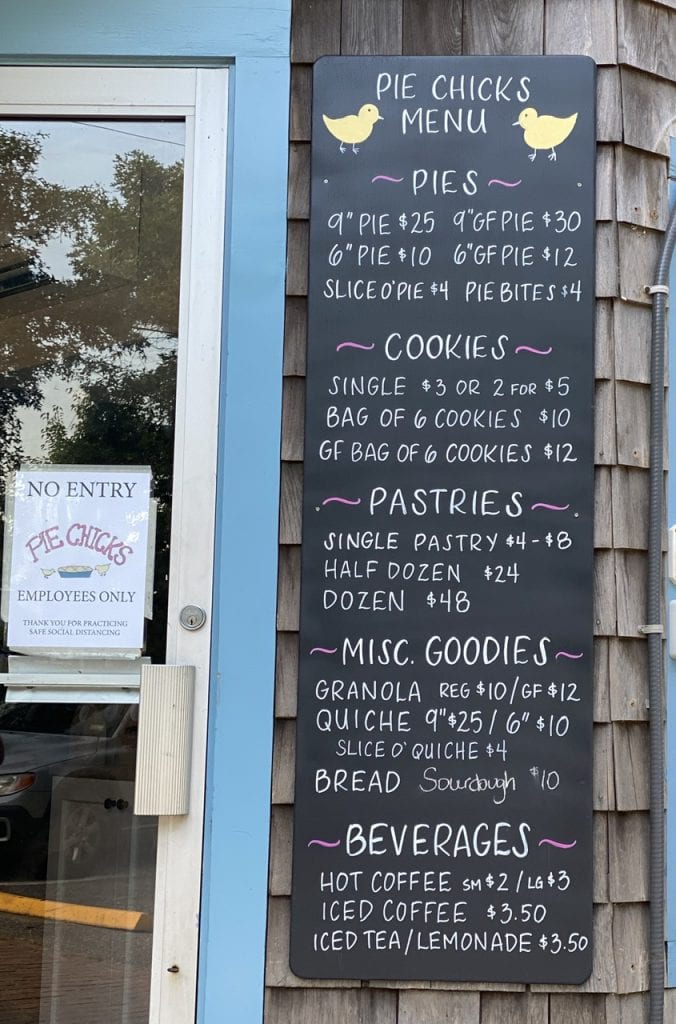 PIE CHICKS
MENU
~ PIES ~
9" PIE $25 9" GF PIE $30
6" PIE $10 6" GF PIE $12
SLICE O' PIE $4 PIE BITES $4
~ COOKIES ~
SINGLE $3 OR 2 FOR $5
BAG OF 6 COOKIES $10
GF BAG OF 6 COOKIES $12
~ PASTRIES ~
SINGLE PASTRY $4-$8
HALF DOZEN $24
DOZEN $48
~ MISC. GOODIES ~
GRANOLA REG $10/GF $12
QUICHE 9" $25/ 6" $10
SLICE O' QUICHE $4
BREAD Sourdough $10
~ BEVERAGES ~
HOT COFFEE SM $2/LG $3
ICED COFFEE $3.50
ICED TEA/LEMONADE $3.50
NO ENTRY
PIE CHICKS
EMPLOYEES ONLY
THANK YOU FOR PRACTICING
SAFE SOCIAL DISTANCING